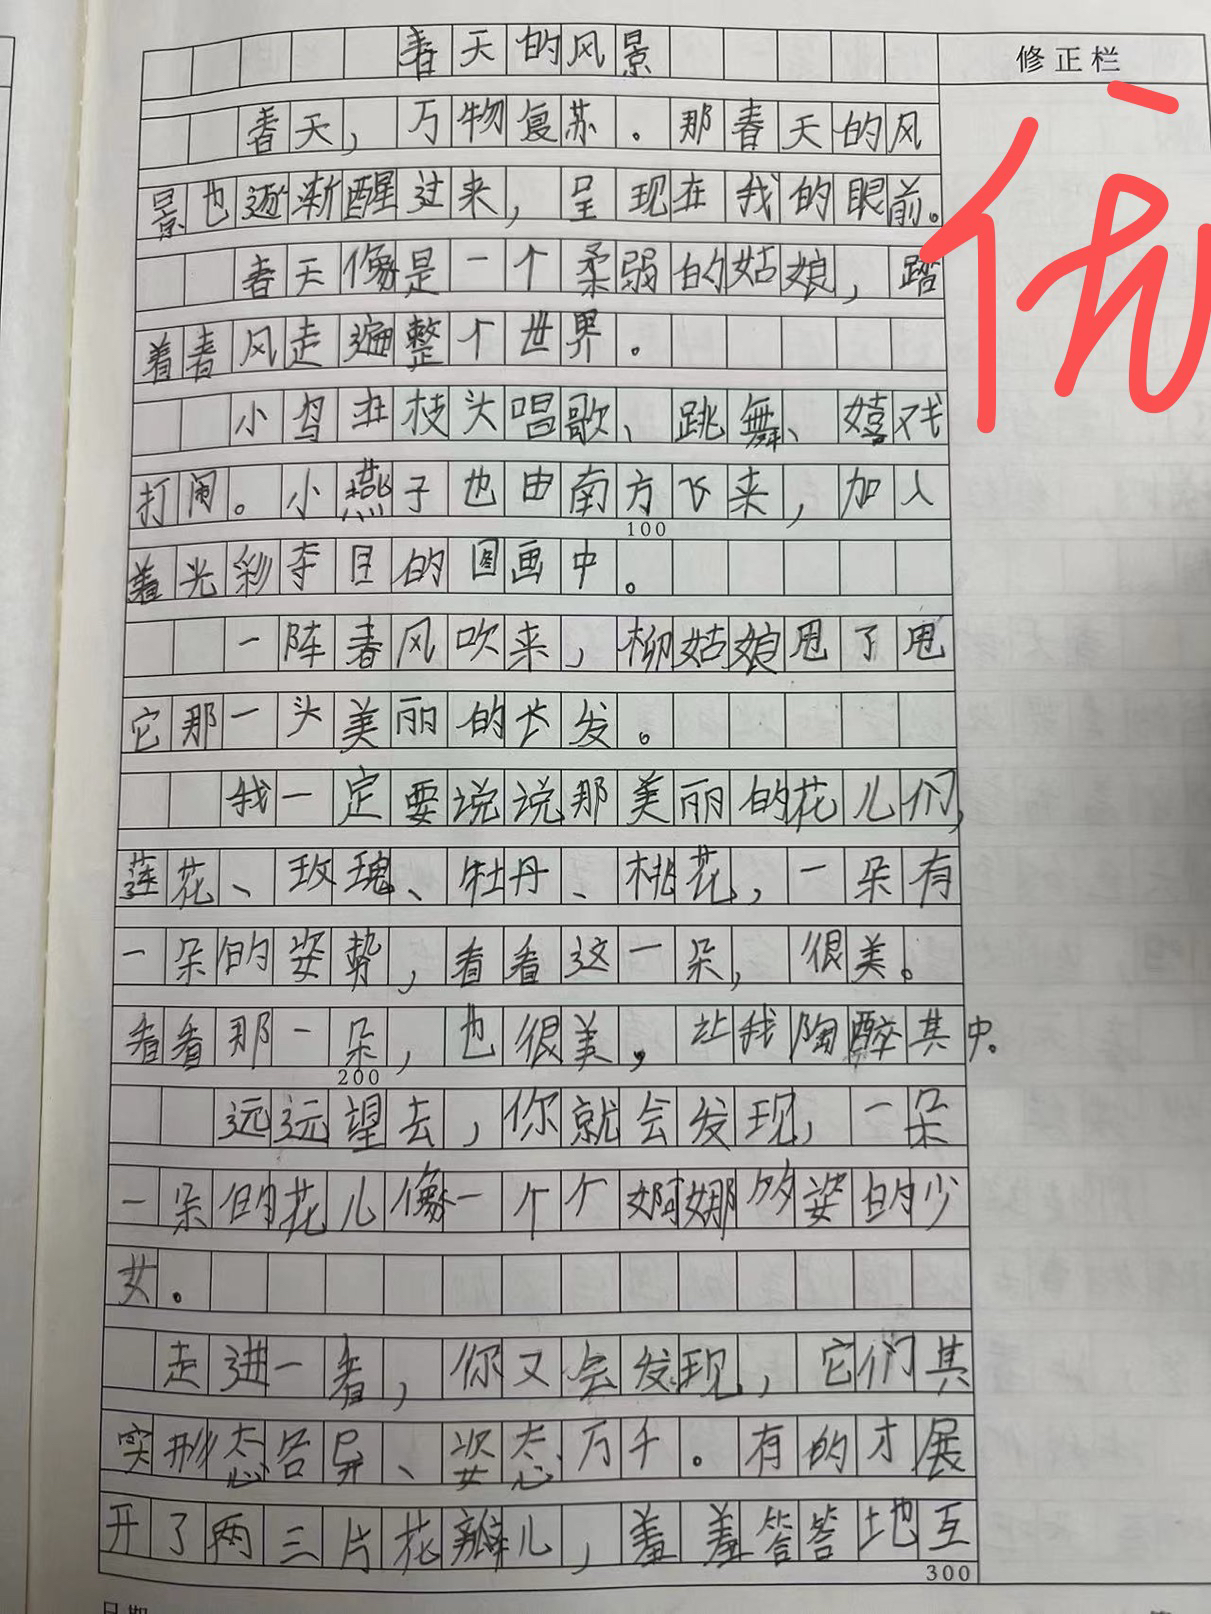 春天的风景
修正栏
优
春天，万物复苏。那春天的风
景也逐渐醒过来，呈现在我的眼前。
春天像是一个柔弱的姑娘，踏
着春风走遍整个世界。
小鸟在枝头唱歌、跳舞、嬉戏
打闹。小燕子也由南方飞来，加入
着光彩夺目的图画中。
100
一阵春风吹来，柳姑娘甩了甩
它那一头美丽的长发。
我一定要说说那美丽的花儿们，
莲花、玫瑰、牡丹、桃花，一朵有
一朵的姿势，看看这一朵，很美。
看看那一朵，也很美，让我陶醉其中。
200
远远望去，你就会发现，一朵
一朵的花儿像一个个婀娜多姿的少
女。
走进一看，你又会发现，它们其
实形态各异、姿态万千。有的才展
开了两三片花瓣儿，羞羞答答地互
300